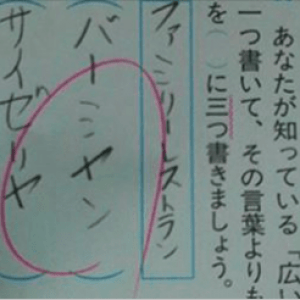 あなたが知っている「広い
一つ書いて、その言葉よりも
を（　）に三つ書きましょう。
ファミリーレストラン
（バーミヤン
（サイゼリヤ